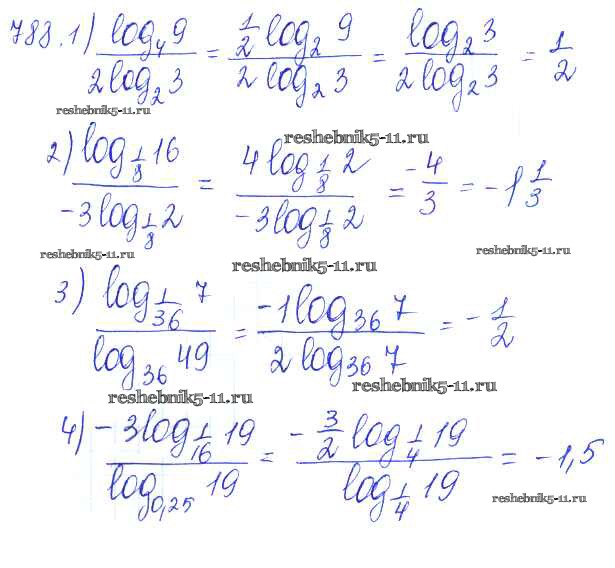 788.1) log₄9 / 2log₂3 = ½log₂9 / 2log₂3 = log₂3 / 2log₂3 = 1/2
reshebnik5-11.ru
reshebnik5-11.ru
2) log_{1/8}16 / -3log_{1/8}2 = 4log_{1/8}2 / -3log_{1/8}2 = -4/3 = -1 1/3
reshebnik5-11.ru
reshebnik5-11.ru
3) log_{1/36}7 / log₃₆49 = -1log₃₆7 / 2log₃₆7 = -1/2
reshebnik5-11.ru
reshebnik5-11.ru
4) -3log_{1/16}19 / log_{0,25}19 = -3/2 log_{1/4}19 / log_{1/4}19 = -1,5
reshebnik5-11.ru